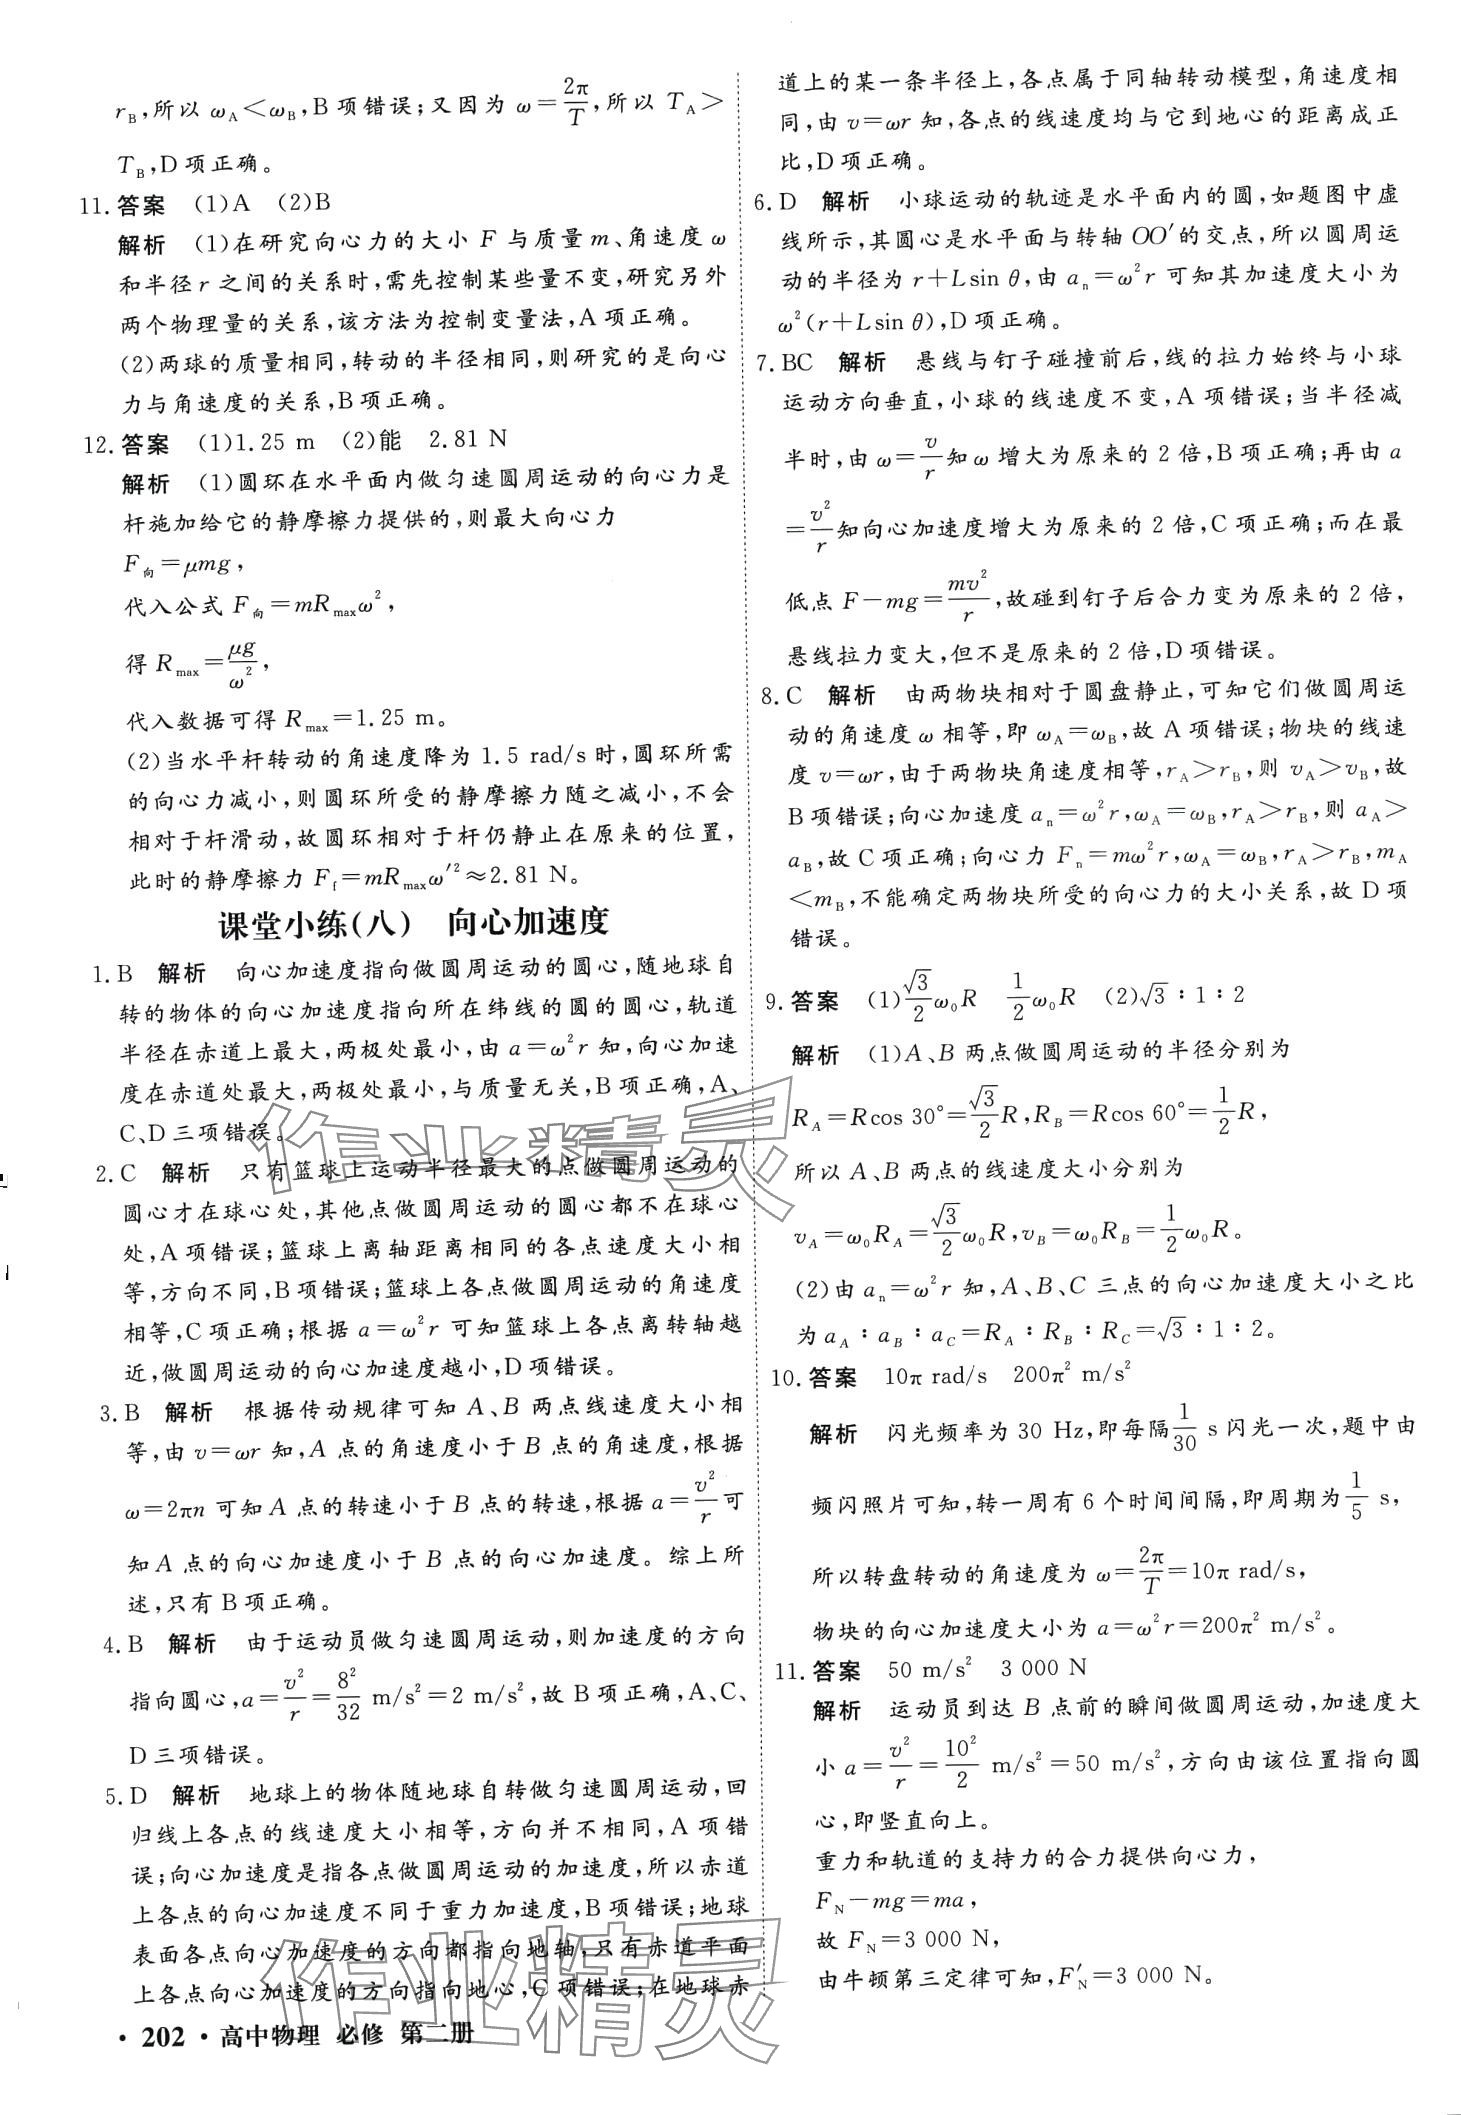 r_B,所以 ω_A<ω_B,B 项错误;又因为 ω=2π/T,所以 T_A>
T_B,D 项正确。
11. 答案 (1)A (2)B
解析 (1)在研究向心力的大小 F 与质量 m、角速度 ω
和半径 r 之间的关系时,需先控制某些量不变,研究另外
两个物理量的关系,该方法为控制变量法,A 项正确。
(2)两球的质量相同,转动的半径相同,则研究的是向心
力与角速度的关系,B 项正确。
12. 答案 (1)1.25 m (2)能 2.81 N
解析 (1)圆环在水平面内做匀速圆周运动的向心力是
杆施加给它的静摩擦力提供的,则最大向心力
F_向=μmg,
代入公式 F_向=mR_maxω²,
得 R_max=μg/ω²,
代入数据可得 R_max=1.25 m。
(2)当水平杆转动的角速度降为 1.5 rad/s 时,圆环所需
的向心力减小,则圆环所受的静摩擦力随之减小,不会
相对于杆滑动,故圆环相对于杆仍静止在原来的位置,
此时的静摩擦力 F_f=mR_maxω′²≈2.81 N。
课堂小练(八) 向心加速度
1. B 解析 向心加速度指向做圆周运动的圆心,随地球自
转的物体的向心加速度指向所在纬线的圆的圆心,轨道
半径在赤道上最大,两极处最小,由 a=ω²r 知,向心加速
度在赤道处最大,两极处最小,与质量无关,B 项正确,A、
C、D 三项错误。
2. C 解析 只有篮球上运动半径最大的点做圆周运动的
圆心才在球心处,其他点做圆周运动的圆心都不在球心
处,A 项错误;篮球上离轴距离相同的各点速度大小相
等,方向不同,B 项错误;篮球上各点做圆周运动的角速度
相等,C 项正确;根据 a=ω²r 可知篮球上各点离转轴越
近,做圆周运动的向心加速度越小,D 项错误。
3. B 解析 根据传动规律可知 A、B 两点线速度大小相
等,由 v=ωr 知,A 点的角速度小于 B 点的角速度,根据
ω=2πn 可知 A 点的转速小于 B 点的转速,根据 a=v²/r 可
知 A 点的向心加速度小于 B 点的向心加速度。综上所
述,只有 B 项正确。
4. B 解析 由于运动员做匀速圆周运动,则加速度的方向
指向圆心,a=v²/r=8²/32 m/s²=2 m/s²,故 B 项正确,A、C、
D 三项错误。
5. D 解析 地球上的物体随地球自转做匀速圆周运动,回
归线上各点的线速度大小相等,方向并不相同,A 项错
误;向心加速度是指各点做圆周运动的加速度,所以赤道
上各点的向心加速度不同于重力加速度,B 项错误;地球
表面各点向心加速度的方向都指向地轴,只有赤道平面
上各点向心加速度的方向指向地心,C 项错误;在地球赤
道上的某一条半径上,各点属于同轴转动模型,角速度相
同,由 v=ωr 知,各点的线速度均与它到地心的距离成正
比,D 项正确。
6. D 解析 小球运动的轨迹是水平面内的圆,如题图中虚
线所示,其圆心是水平面与转轴 OO′的交点,所以圆周运
动的半径为 r+Lsin θ,由 a_n=ω²r 可知其加速度大小为
ω²(r+Lsin θ),D 项正确。
7. BC 解析 悬线与钉子碰撞前后,线的拉力始终与小球
运动方向垂直,小球的线速度不变,A 项错误;当半径减
半时,由 ω=v/r 知 ω 增大为原来的 2 倍,B 项正确;再由 a
=v²/r 知向心加速度增大为原来的 2 倍,C 项正确;而在最
低点 F-mg=mv²/r,故碰到钉子后合力变为原来的 2 倍,
悬线拉力变大,但不是原来的 2 倍,D 项错误。
8. C 解析 由两物块相对于圆盘静止,可知它们做圆周运
动的角速度 ω 相等,即 ω_A=ω_B,故 A 项错误;物块的线速
度 v=ωr,由于两物块角速度相等,r_A>r_B,则 v_A>v_B,故
B 项错误;向心加速度 a_n=ω²r,ω_A=ω_B,r_A>r_B,则 a_A>
a_B,故 C 项正确;向心力 F_n=mω²r,ω_A=ω_B,r_A>r_B,m_A
<m_B,不能确定两物块所受的向心力的大小关系,故 D 项
错误。
9. 答案 (1)√3/2 ω₀R 1/2 ω₀R (2)√3∶1∶2
解析 (1)A、B 两点做圆周运动的半径分别为
R_A=Rcos 30°=√3/2 R,R_B=Rcos 60°=1/2 R,
所以 A、B 两点的线速度大小分别为
v_A=ω₀R_A=√3/2 ω₀R,v_B=ω₀R_B=1/2 ω₀R。
(2)由 a_n=ω²r 知,A、B、C 三点的向心加速度大小之比
为 a_A∶a_B∶a_C=R_A∶R_B∶R_C=√3∶1∶2。
10. 答案 10π rad/s 200π² m/s²
解析 闪光频率为 30 Hz,即每隔 1/30 s 闪光一次,题中由
频闪照片可知,转一周有 6 个时间间隔,即周期为 1/5 s,
所以转盘转动的角速度为 ω=2π/T=10π rad/s,
物块的向心加速度大小为 a=ω²r=200π² m/s²。
11. 答案 50 m/s² 3 000 N
解析 运动员到达 B 点前的瞬间做圆周运动,加速度大
小 a=v²/r=10²/2 m/s²=50 m/s²,方向由该位置指向圆
心,即竖直向上。
重力和轨道的支持力的合力提供向心力,
F_N-mg=ma,
故 F_N=3 000 N,
由牛顿第三定律可知,F′_N=3 000 N。
作业精灵
作业精灵
· 202 · 高中物理 必修 第二册